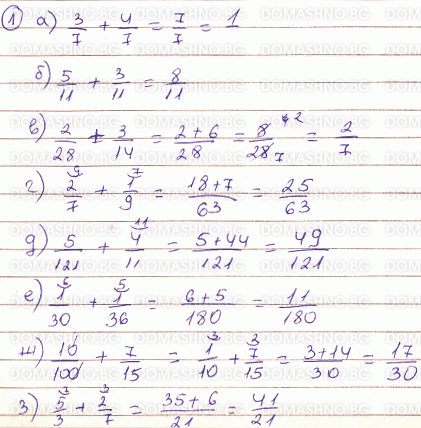 ① а) 3/7 + 4/7 = 7/7 = 1
б) 5/11 + 3/11 = 8/11
в) 2/28 + 3/14 = 2+6/28 = 8/28 = 2/7
г) 2/7 + 1/9 = 18+7/63 = 25/63
д) 5/121 + 4/11 = 5+44/121 = 49/121
е) 1/30 + 1/36 = 6+5/180 = 11/180
ж) 10/100 + 7/15 = 1/10 + 7/15 = 3+14/30 = 17/30
з) 5/3 + 2/7 = 35+6/21 = 41/21
DOMASHNO.BG